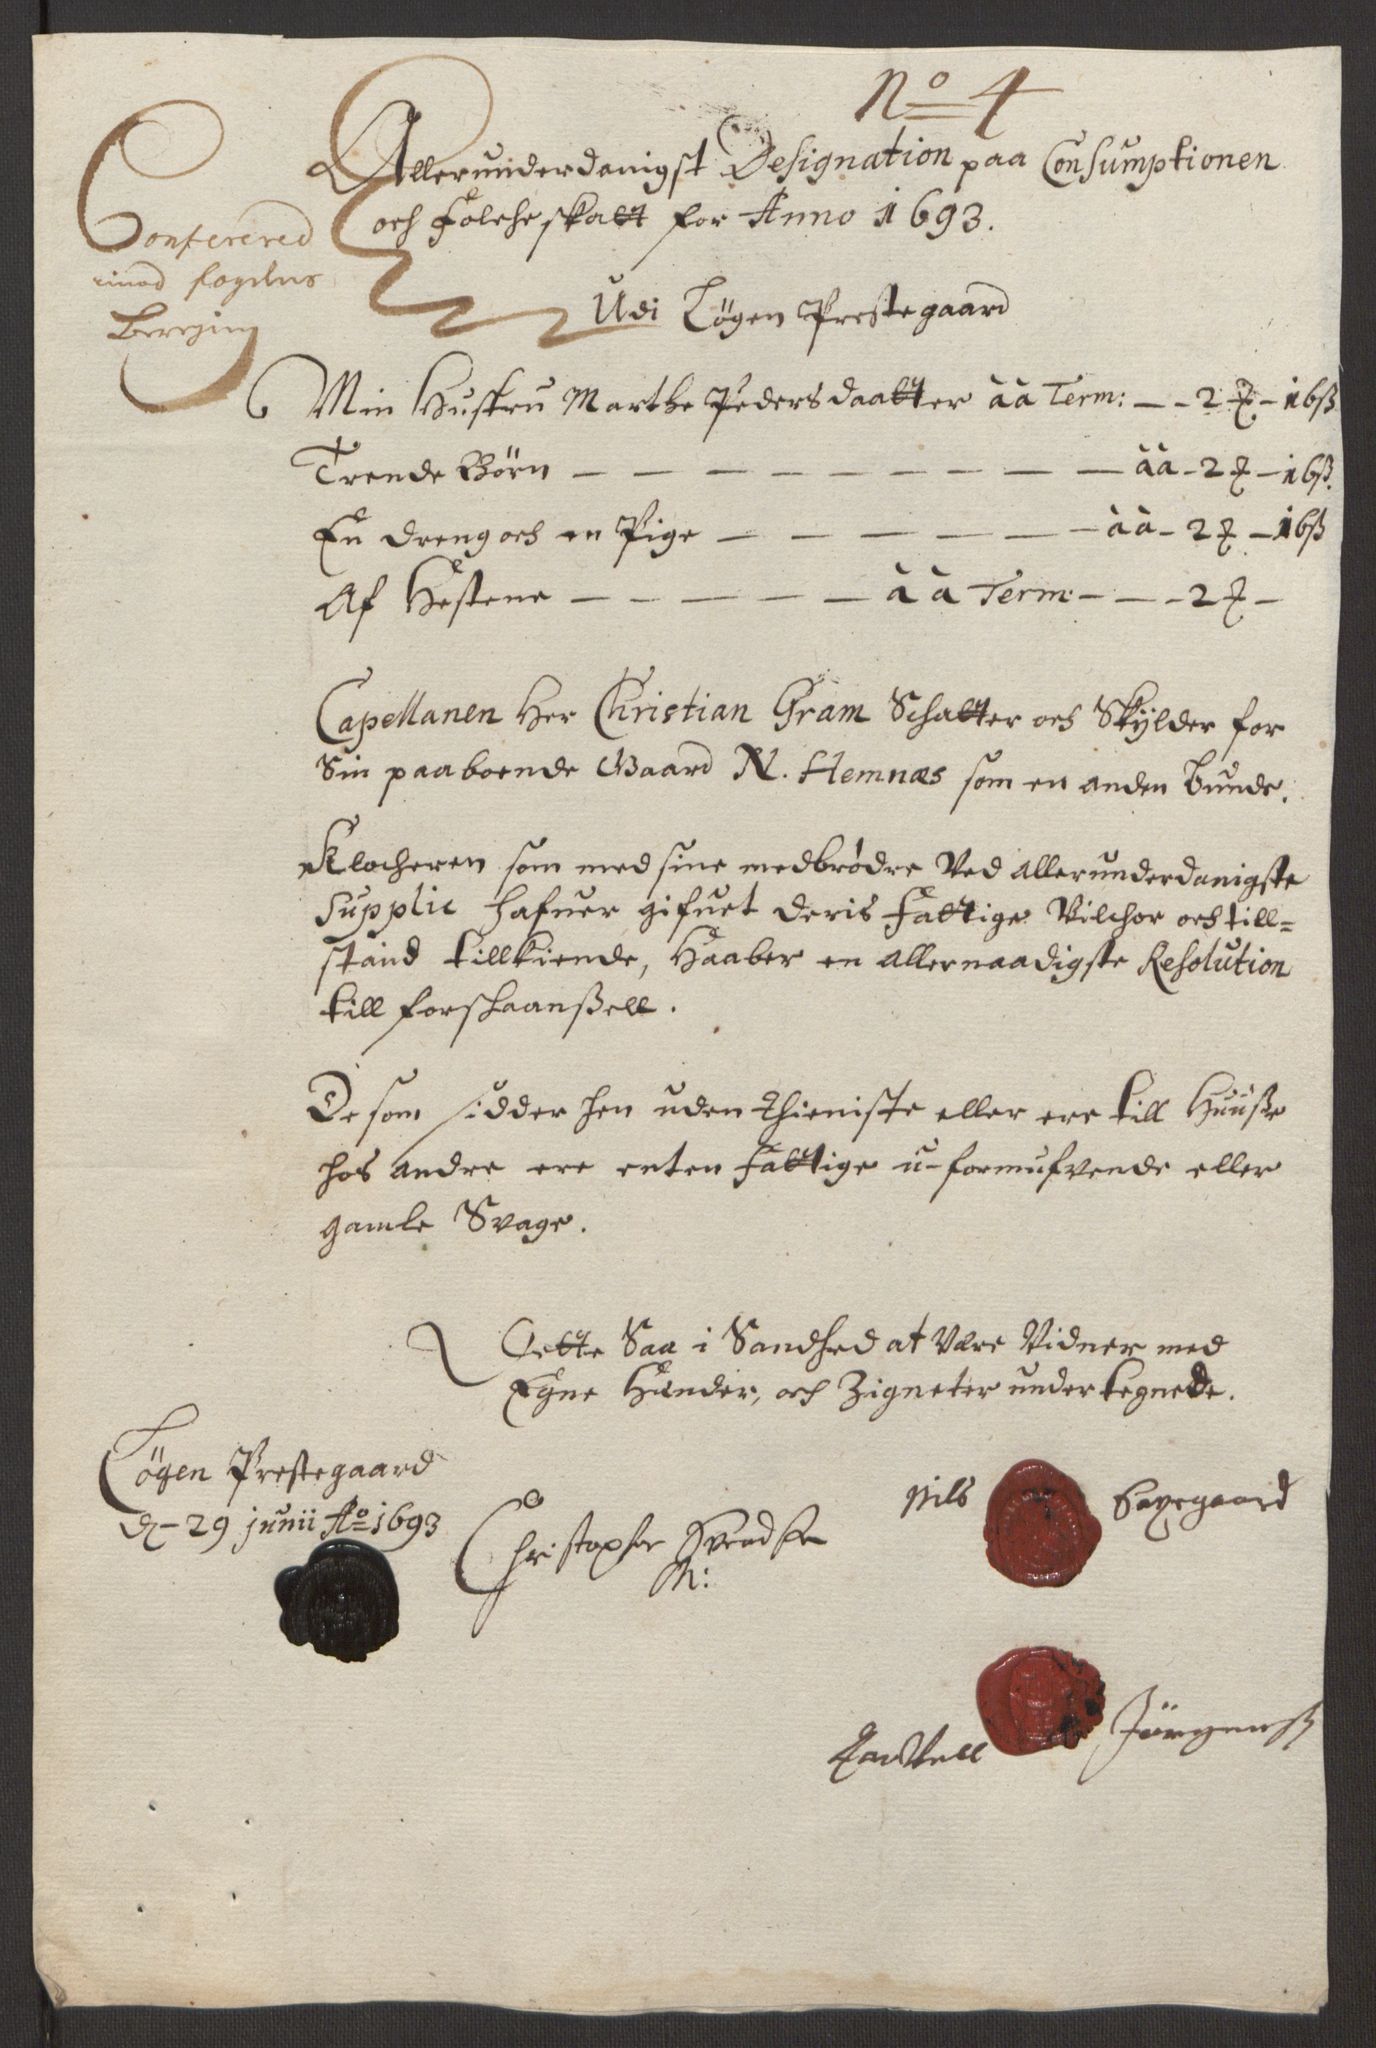 No 4
Allerunderdanigst Designation paa Consumptionen
och Folcheskatt for Anno 1693.
Conferered
imod fogdens
Beregning
Udi Løgen Prestegaard
Min Hustru Marthe Pedersdaatter àà Term: — - 2 ₰ - 16 ß
Trende Börn — — — — — — — — àà - 2 ₰ - 16 ß.
En dreng och en Pige — — — — — — àà - 2 ₰ - 16 ß
Af Hestene — — — — — àà Term: — — - 2 ₰ -
Capellanen Her Christian Gram Schatter och Skÿlder for
Sin paaboende Gaard N. Hemnæs som en anden bunde.
Klocheren som med sine medbrødre Ved allerunderdanigste
Supplic hafuer gifuet deris Fattige Vilchor och till=
stand tillkiende, Haaber en allernaadigste Resolution
till forskaanßell.
De som sidder hen uden thieniste eller ere till Huuße
hos andre ere enten Fattige u-formufvende eller
gamle Svage.
Dette Saa i Sandhed at Være Vidner med
Egne Hænder, och Zigneter underkegnede.
Løgen Prestegaard
d - 29 junii Ao 1693
Christopher Svendsen
M:
Nils Sayegaard
Jörgenß